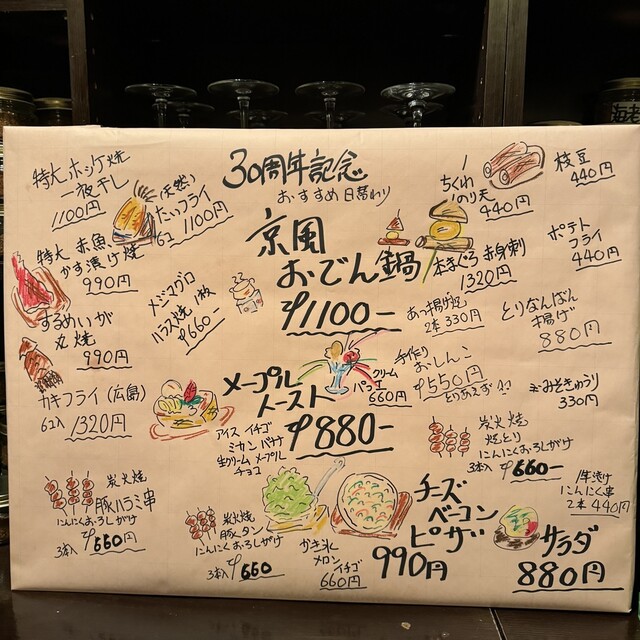 30周年記念
おすすめ日替わり
特大ホッケ焼
一夜干し
1100円
(天然)
たいフライ
6コ 1100円
京風
おでん鍋
₱1100-
ちくわ
のり天
440円
枝豆
440円
特大 赤魚
かす漬け焼
990円
メジマグロ
ハラス焼 1枚
₱660-
本まぐろ 赤身刺
1320円
ポテト
フライ
440円
するめいか
丸焼
990円
あつ揚げ焼
2本 330円
とりなんばん
揚げ
880円
カキフライ(広島)
6コ入 1320円
メープル
トースト
₱880-
アイス イチゴ
ミカン バナナ
生クリーム メープル
チョコ
クリーム
660円
手作り
おしんこ
₱550円
とりあえず!!
みそきゅうり
330円
炭火焼
焼とり
にんにくおろしがけ
3本入 ₱660-
1年漬け
にんにく串
2本 440円
炭火焼
豚ハラミ串
にんにくおろしがけ
3本入 ₱660円
炭火焼
豚タン
にんにくおろしがけ
3本入 ₱660
かき氷
メロン
イチゴ
660円
チーズ
ベーコン
ピザ
990円
サラダ
880円
海老